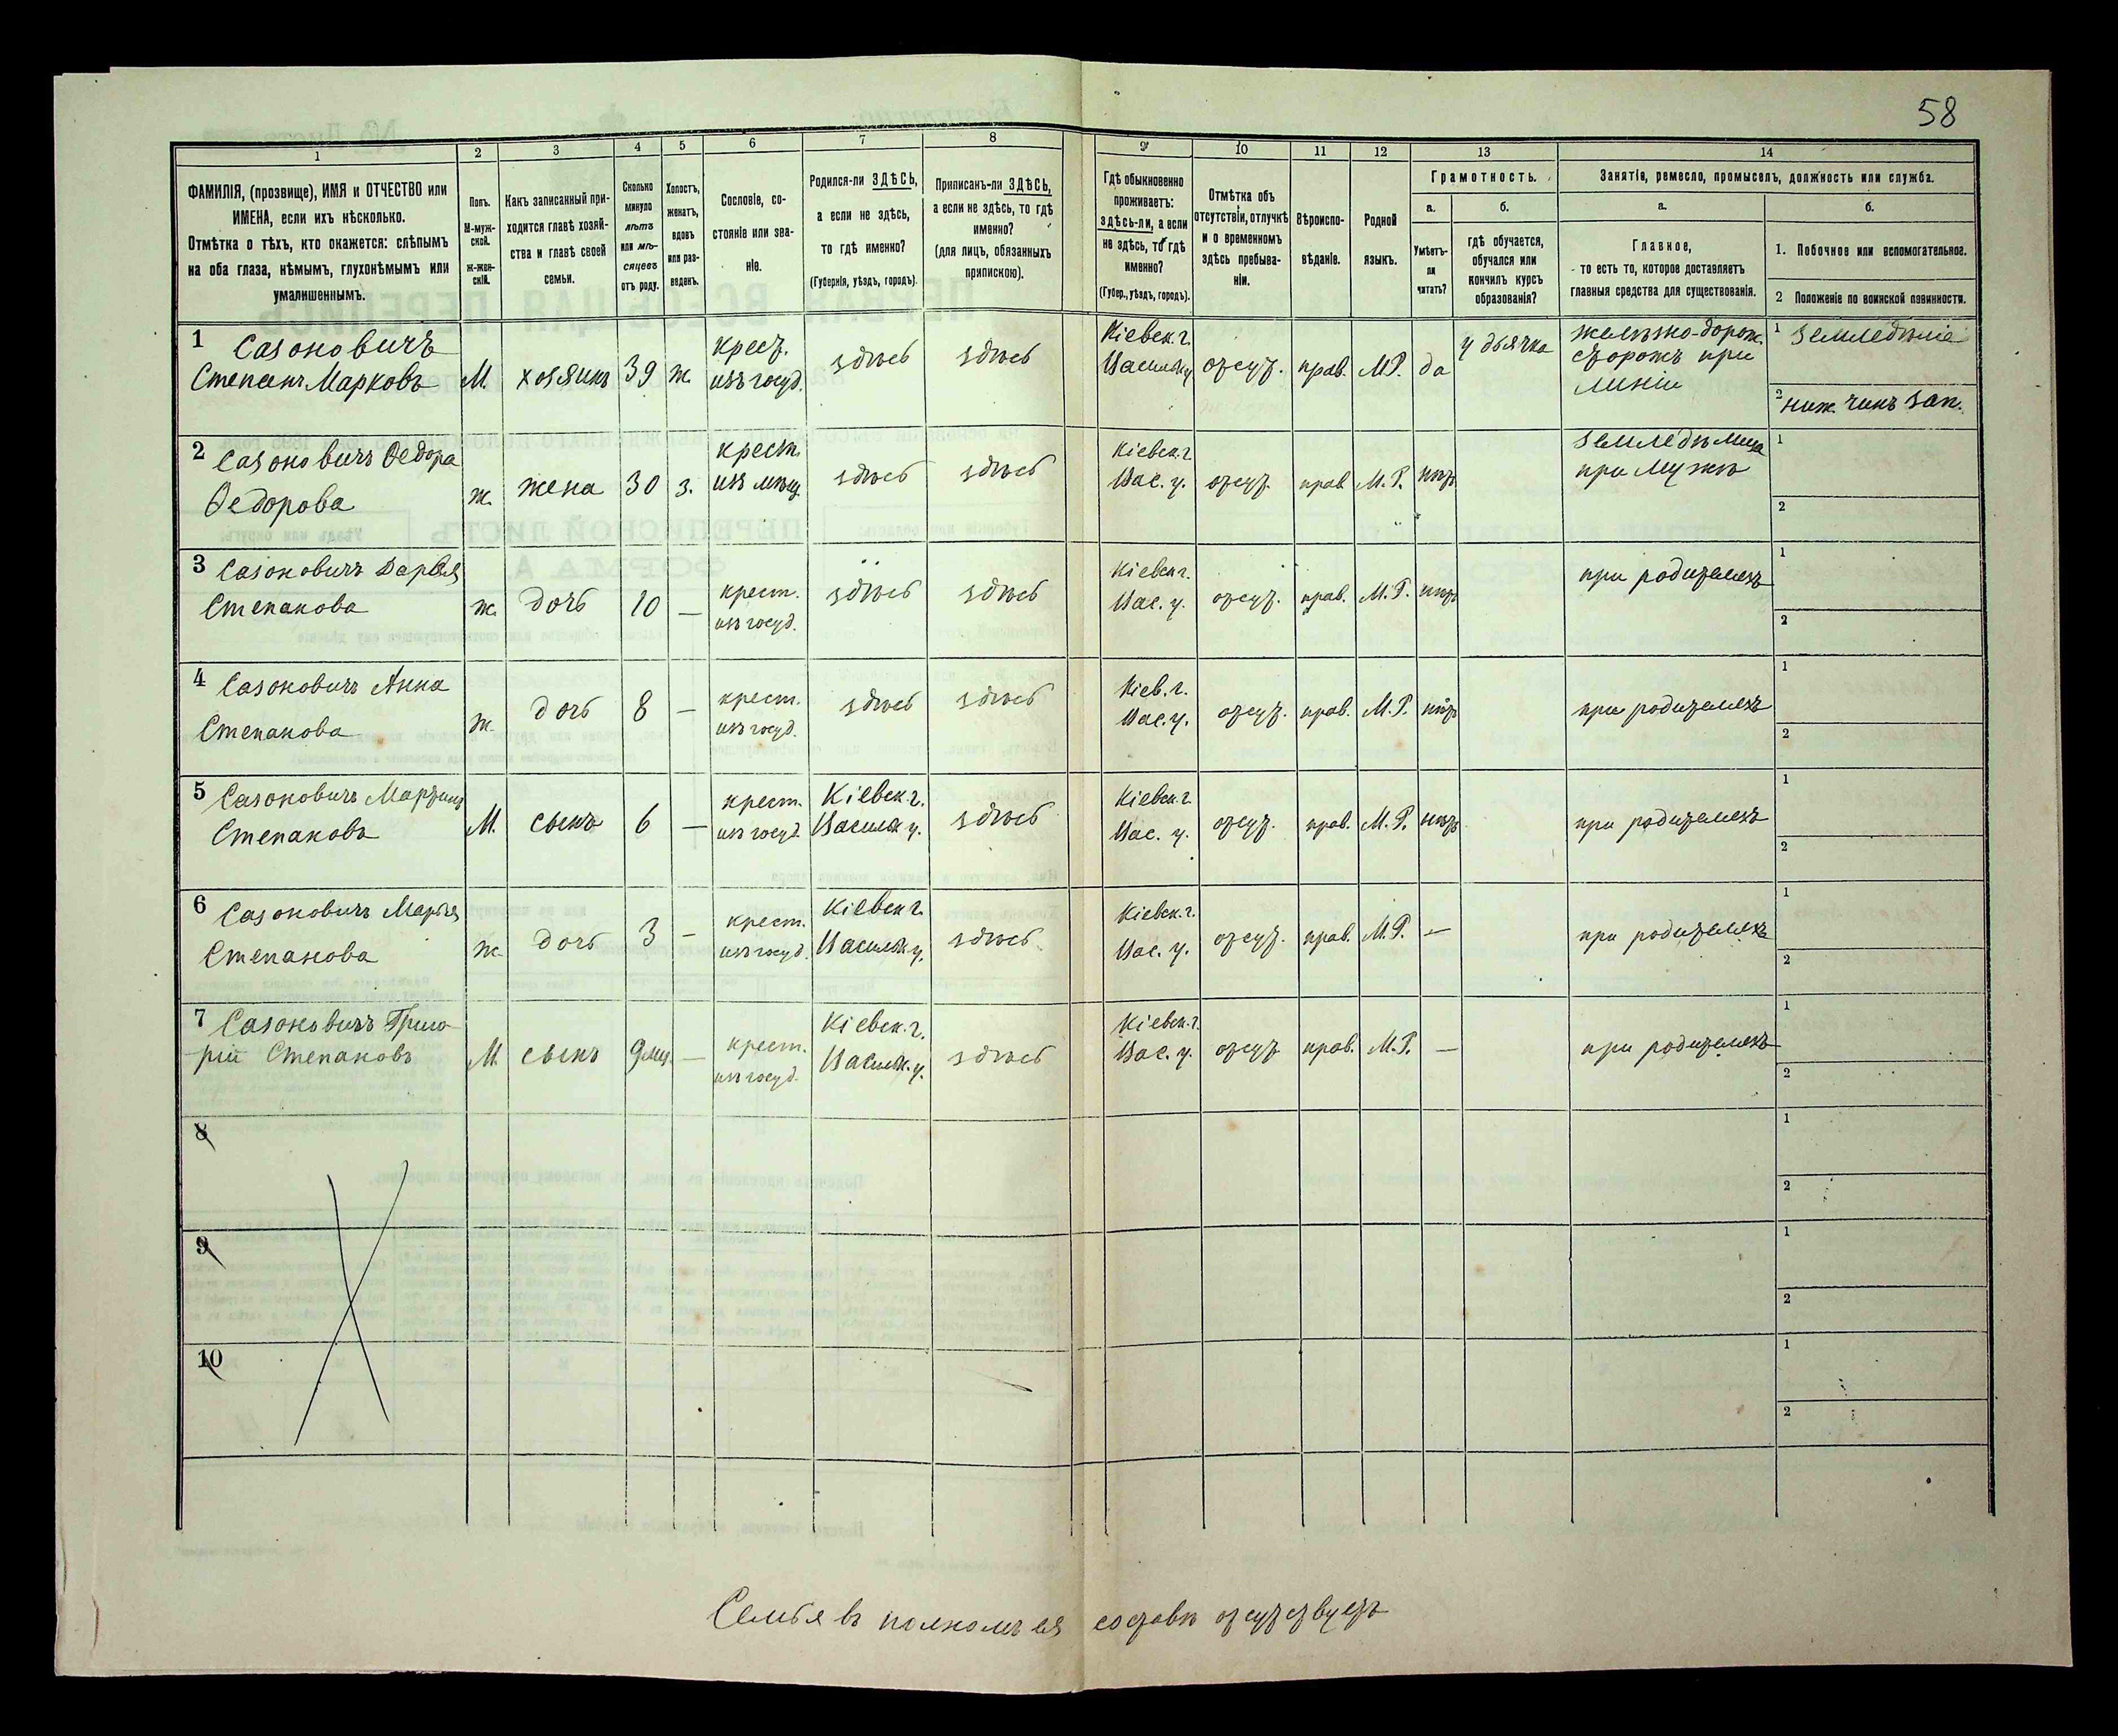 58
1 2 3 4 5 6 7 8 9 10 11 12 13 14
ФАМИЛІЯ, (прозвище), ИМЯ и ОТЧЕСТВО или
ИМЕНА, если ихъ нѣсколько.
Отмѣтка о тѣхъ, кто окажется: слѣпымъ
на оба глаза, нѣмымъ, глухонѣмымъ или
умалишеннымъ.
Полъ.
М-муж-
ской.
Ж-жен-
скій.
Какъ записанный при-
ходится главѣ хозяй-
ства и главѣ своей
семьи.
Сколько
минуло
лѣтъ
или мѣ-
сяцевъ
отъ роду.
Холостъ,
женатъ,
вдовъ
или раз-
веденъ.
Сословіе, со-
стояніе или зва-
ніе.
Родился-ли ЗДѢСЬ,
а если не здѣсь,
то гдѣ именно?
(Губернія, уѣздъ, городъ).
Приписанъ-ли ЗДѢСЬ,
а если не здѣсь, то гдѣ
именно?
(для лицъ, обязанныхъ
припискою).
Гдѣ обыкновенно
проживаетъ:
здѣсь-ли, а если
не здѣсь, то гдѣ
именно?
(Губер., уѣздъ, городъ).
Отмѣтка объ
отсутствіи, отлучкѣ
и о временномъ
здѣсь пребыва-
ніи.
Вѣроиспо-
вѣданіе.
Родной
языкъ.
Грамотность.
а.
Умѣетъ-
ли
читать?
б.
гдѣ обучается,
обучался или
кончилъ курсъ
образованія?
Занятіе, ремесло, промыселъ, должность или служба.
а.
Главное,
то есть то, которое доставляетъ
главныя средства для существованія.
б.
1. Побочное или вспомогательное.
2 Положеніе по воинской повинности.
1 Сазоновичъ
Степанъ Марковъ М. хозяинъ 39 ж. крест. изъ госуд. здѣсь здѣсь Кіевск. г. Васильк. у. отсут. прав. М.Р. да у дьячка желѣзно-дорож. сторожъ при линіи 1 земледѣліе
2 ниж. чинъ зап.
2 Сазоновичъ Ѳедора
Ѳедорова ж. жена 30 з. крест. изъ мѣщ. здѣсь здѣсь Кіевск. г. Вас. у. отсут. прав. М.Р. нѣтъ земледѣлица при мужѣ 1
2
3 Сазоновичъ Дарья
Степанова ж. дочь 10 — крест. изъ госуд. здѣсь здѣсь Кіевск. г. Вас. у. отсут. прав. М.Р. нѣтъ при родителяхъ 1
2
4 Сазоновичъ Анна
Степанова ж. дочь 8 — крест. изъ госуд. здѣсь здѣсь Кіев. г. Вас. у. отсут. прав. М.Р. нѣтъ при родителяхъ 1
2
5 Сазоновичъ Мартинъ
Степановъ М. сынъ 6 — крест. изъ госуд. Кіевск. г. Васильк. у. здѣсь Кіевск. г. Вас. у. отсут. прав. М.Р. нѣтъ при родителяхъ 1
2
6 Сазоновичъ Марья
Степанова ж. дочь 3 — крест. изъ госуд. Кіевск. г. Васильк. у. здѣсь Кіевск. г. Вас. у. отсут. прав. М.Р. — при родителяхъ 1
2
7 Сазоновичъ Григо-
рій Степановъ М. сынъ 9 мѣц. — крест. изъ госуд. Кіевск. г. Васильк. у. здѣсь Кіевск. г. Вас. у. отсут. прав. М.Р. — при родителяхъ 1
2
8 1
2
9 1
2
10 1
2
Семья въ полномъ ея составѣ отсутствуетъ